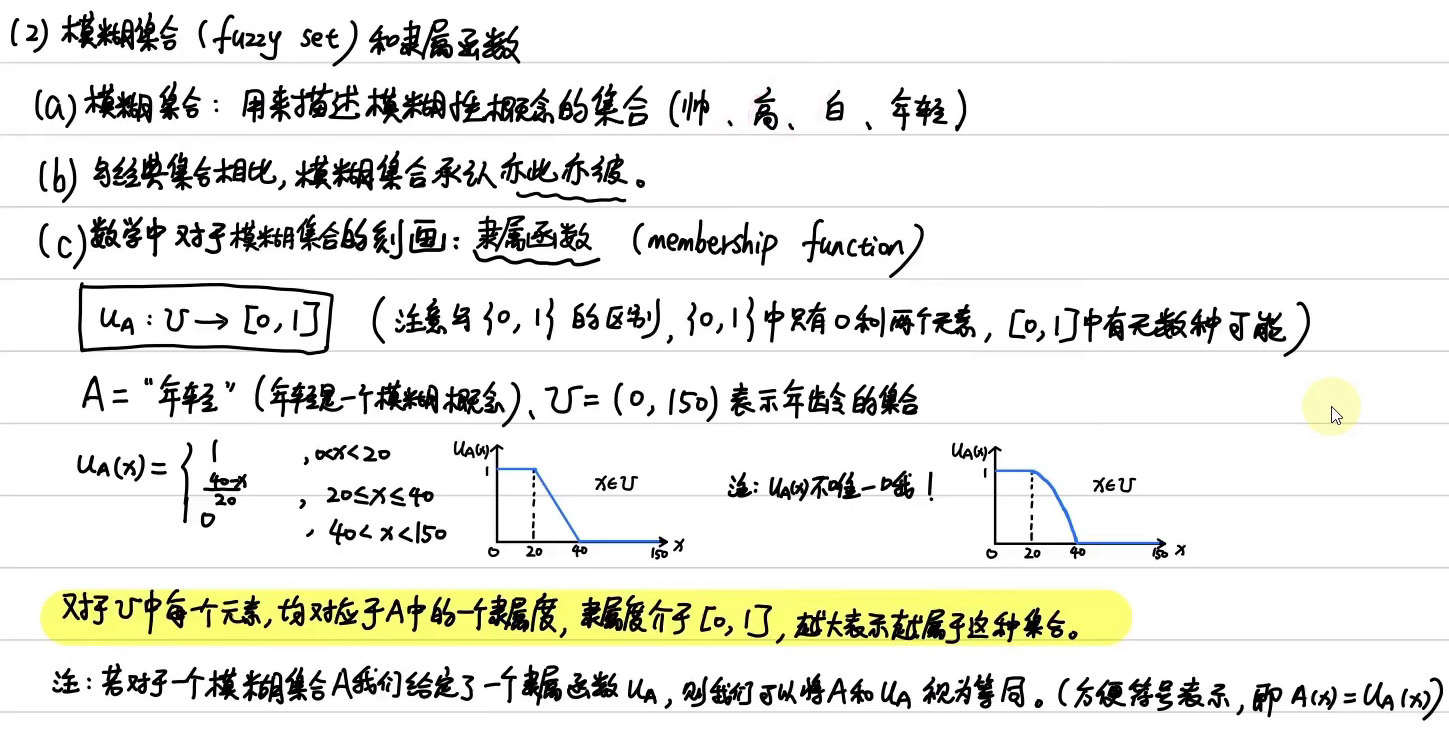 (2) 模糊集合 (fuzzy set) 和隶属函数
(a) 模糊集合：用来描述模糊性概念的集合 (帅、高、白、年轻)
(b) 与经典集合相比, 模糊集合承认亦此亦彼。
(c) 数学中对于模糊集合的刻画：隶属函数 (membership function)
u_A : U → [0,1] (注意与{0,1}的区别, {0,1}中只有0和1两个元素, [0,1]中有无数种可能)
A = “年轻” (年轻是一个模糊概念)、U = (0,150) 表示年龄的集合
u_A(x) = { 1 , 0<x<20
(40-x)/20 , 20≤x≤40
0 , 40<x<150
u_A(x) 1 0 20 40 150 x
x∈U
注: u_A(x)不唯一哦!
u_A(x) 1 0 20 40 150 x
x∈U
对于U中每个元素, 均对应于A中的一个隶属度, 隶属度介于[0,1], 越大表示越属于这种集合。
注：若对于一个模糊集合A我们给定了一个隶属函数u_A, 则我们可以将A和u_A视为等同。(方便符号表示, 即 A(x)=u_A(x))